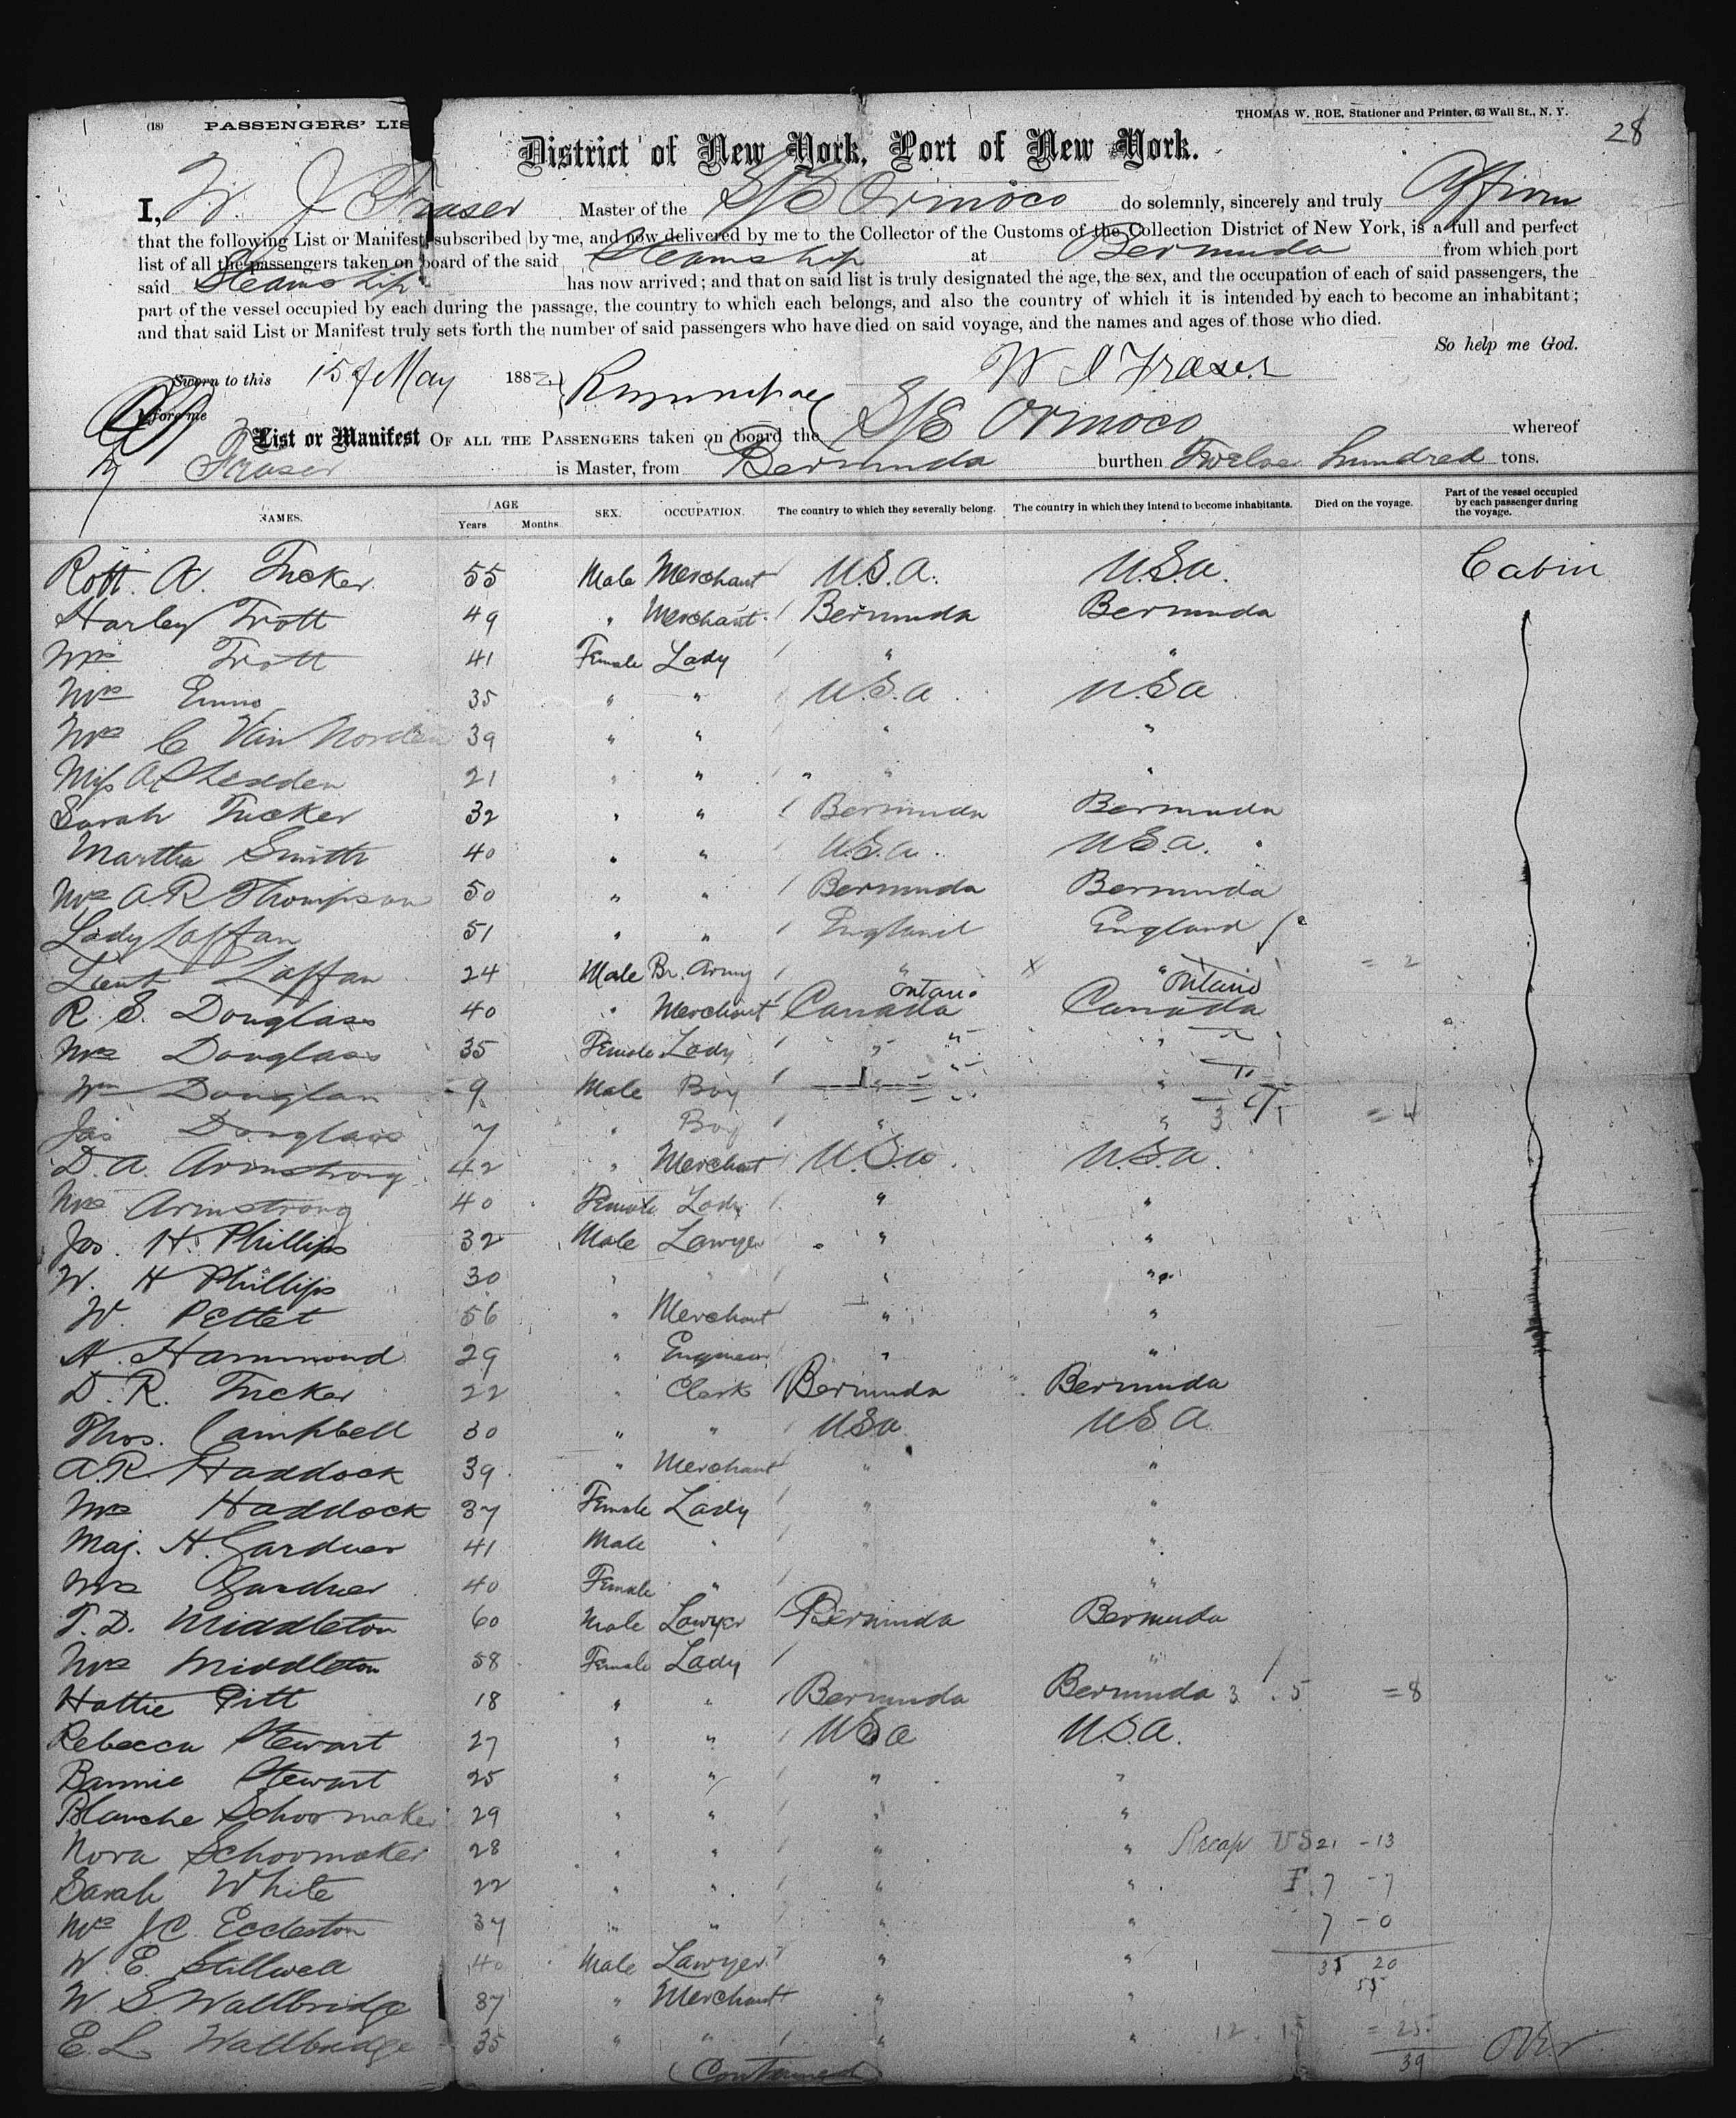 (18) PASSENGERS' LIS
THOMAS W. ROE, Stationer and Printer, 63 Wall St., N. Y.
28
District of New York, Port of New York.
I, W. J Fraser Master of the S/S Orinoco do solemnly, sincerely and truly Affirm
that the following List or Manifest, subscribed by me, and now delivered by me to the Collector of the Customs of the Collection District of New York, is a full and perfect
list of all the passengers taken on board of the said Steamship at Bermuda from which port
said Steamship has now arrived; and that on said list is truly designated the age, the sex, and the occupation of each of said passengers, the
part of the vessel occupied by each during the passage, the country to which each belongs, and also the country of which it is intended by each to become an inhabitant;
and that said List or Manifest truly sets forth the number of said passengers who have died on said voyage, and the names and ages of those who died.
So help me God.
Sworn to this 15 of May 188 W J Fraser
before me
List or Manifest OF ALL THE PASSENGERS taken on board the S/S Orinoco whereof
Fraser is Master, from Bermuda burthen Twelve hundred tons.
NAMES. AGE Years Months. SEX. OCCUPATION. The country to which they severally belong. The country in which they intend to become inhabitants. Died on the voyage. Part of the vessel occupied by each passenger during the voyage.
Robt. A. Tucker 55 Male Merchant U.S.A. U.S.A. Cabin
Harley Trott 49 " Merchant Bermuda Bermuda
Mrs Trott 41 Female Lady " "
Mrs 35 " " U.S.A. U.S.A
Mrs C Van Norden 39 " " " "
Miss A. Shedden 21 " " " "
Sarah Tucker 32 " " Bermuda Bermuda
Martha Smith 40 " " U.S.A. U.S.A.
Mrs A.R. Thompson 50 " " Bermuda Bermuda
Lady Laffan 51 " " England England
Lieut Laffan 24 Male Br. Army " " = 2
R. S. Douglass 40 " Merchant Canada Ontario Canada Ontario
Mrs Douglass 35 Female Lady " " " "
Wm Douglass 9 Male Boy " "
Jas Douglass 7 " Boy " " 3 = 4
D. A. Armstrong 42 " Merchant U.S.A. U.S.A.
Mrs Armstrong 40 Female Lady " "
Jas. H. Phillips 32 Male Lawyer " "
W. H Phillips 30 " " " "
W. Pettet 56 " Merchant " "
H. Hammond 29 " Engineer " "
D. R. Tucker 22 " Clerk Bermuda Bermuda
Thos. Campbell 30 " " U.S.A. U.S.A.
A.R. Haddock 39 " Merchant " "
Mrs Haddock 37 Female Lady " "
Maj. H. Gardner 41 Male " " "
Mrs Gardner 40 Female " " "
T. D. Middleton 60 Male Lawyer Bermuda Bermuda
Mrs Middleton 58 Female Lady " "
Hattie Pitt 18 " " Bermuda Bermuda 3 . 5 = 8
Rebecca Stewart 27 " " U.S.A U.S.A.
Bannie Stewart 25 " " " "
Blanche Schoomaker 29 " " " "
Nora Schoomaker 28 " " " " Recap US 21 - 13
Sarah White 22 " " " " F. 7 - 7
Mrs J C Eccleston 37 " " " " 7 - 0
W. E. Stillwell 40 Male Lawyer " " 35 20
W. S. Wallbridge 37 " Merchant " " 55
E. L. Wallbridge 35 " " " " 12 . 13 = 25
(Continued) 39 Over